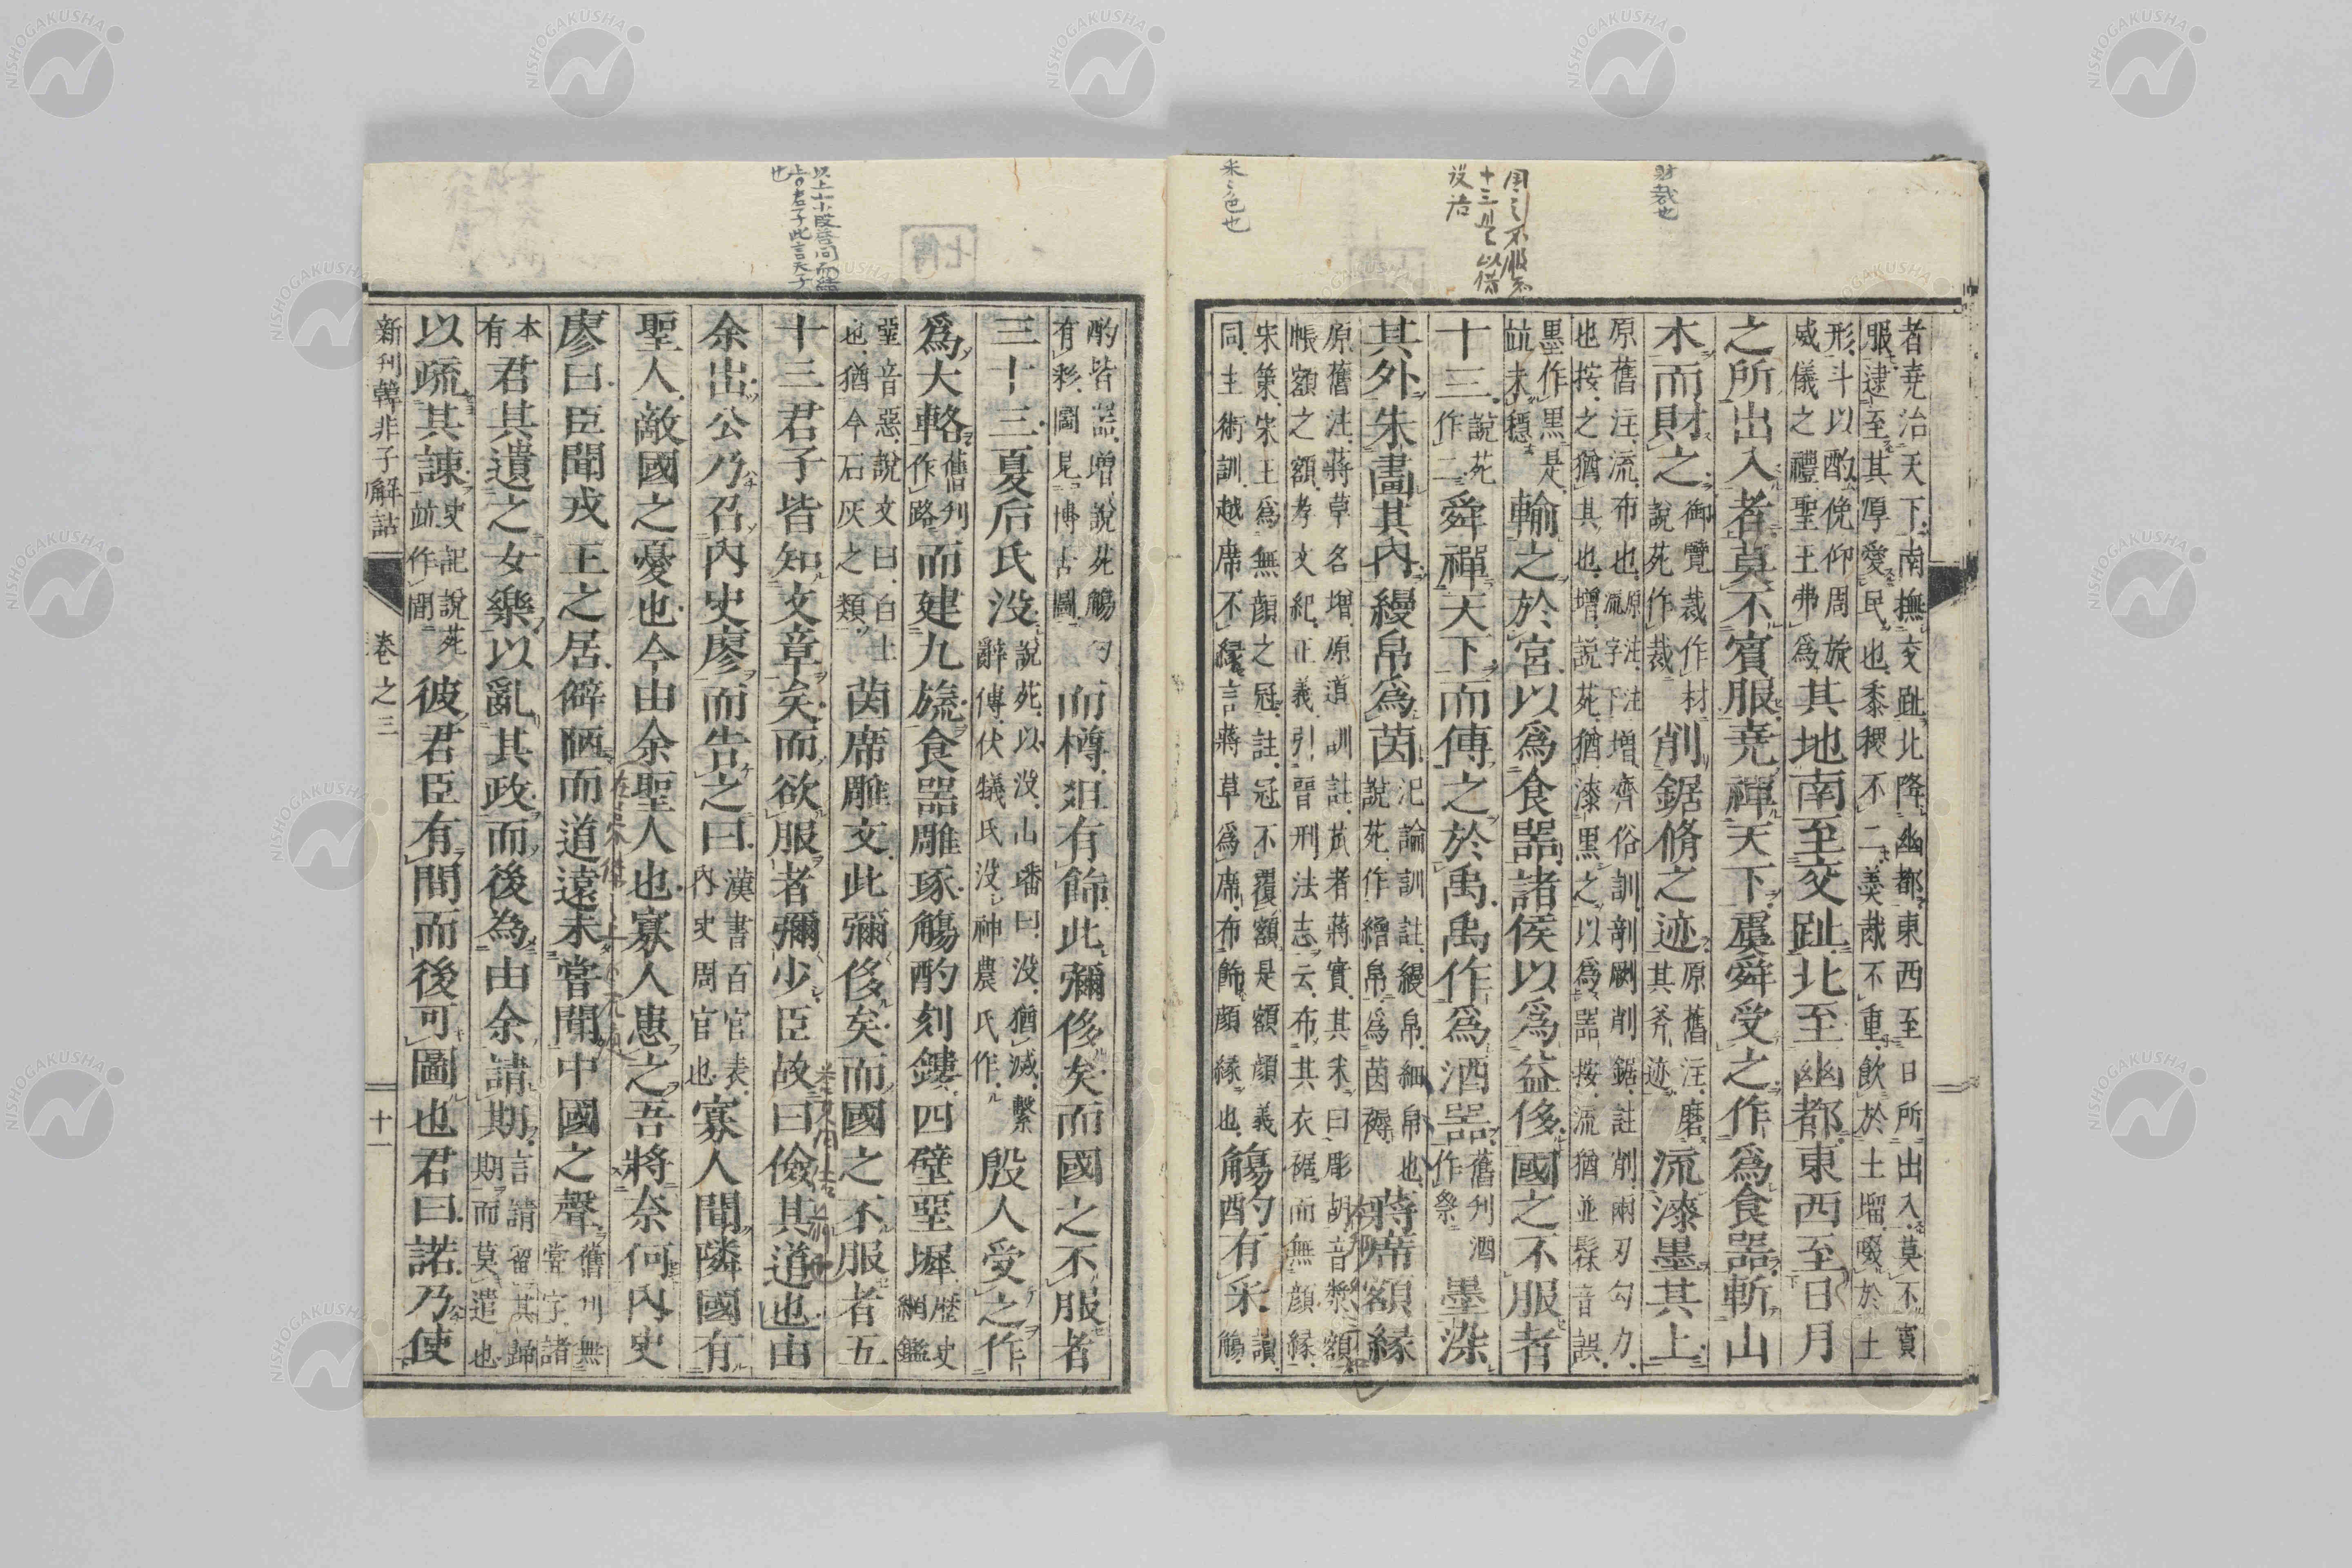 財裁也
十三是以借
設活
采色也
者堯治天下南撫交趾北降幽都東西至日所出入莫不賓
服逮至其厚愛民也黍稷不二羹胾不重飲於土塯啜於土
形斗以酌俛仰周旋
威儀之禮聖王弗爲
其地南至交趾北至幽都東西至日月
之所出入者莫不賓服堯禪天下虞舜受之作爲食器斬山
木而財之
御覽裁作材
說苑作裁
削鋸脩之迹
原舊注磨
其斧迹
流漆墨其上
原舊注流布也增齊俗訓剞劂削鋸註削兩刃勾刀
也按之猶其也增說苑猶漆黒之以爲器按流猶並髹音誤
墨作黒是
竝未穩
輸之於宮以爲食器諸侯以爲益侈國之不服者
十三
說苑
作二
舜禪天下而傳之於禹禹作爲酒器
舊刋酒
作祭
墨染
其外朱畫其内縵帛爲茵
氾論訓註縵帛細帛也
說苑作繒帛爲茵褥
蔣席額緣
原舊注蔣草名增原道訓註苽者蔣實其米曰彫胡音漿額
帳額之額孝文紀正義引晉刑法志云布其衣裾而無顏緣
宋策宋王爲無顏之冠註冠不覆額是額顏義
同主術訓越席不緣言蔣草爲席布飾顏緣也
觴酌有采
讀
觴
酌皆器增說苑觴勺
有彩圖見博古圖
而樽俎有飾此彌侈矣而國之不服者
三十三夏后氏没
說苑以没山璠曰没猶滅繫
辭傳伏犧氏没神農氏作
殷人受之作
爲大輅
舊刋
作路
而建九旒食器雕琢觴酌刻鏤四壁堊墀
歴史
綱鑑
堊音惡說文曰白土
也猶今石灰之類
茵席雕文此彌侈矣而國之不服者五
十三君子皆知文章矣而欲服者彌少臣故曰儉其道也由
余出公乃召内史廖而告之曰
漢書百官表
内史周官也
寡人聞隣國有
聖人敵國之憂也今由余聖人也寡人患之吾將奈何内史
廖曰臣聞戎王之居僻陋而道遠未嘗聞中國之聲
舊刋無
嘗字諸
本
有
君其遺之女樂以亂其政而後為由余請期
言請留其歸
期而莫遣也
以疏其諫
史記說苑
竝作閒
彼君臣有間而後可圖也君曰諾乃使
新刊韓非子解詁
卷之三
十一
NISHOGAKUSHA